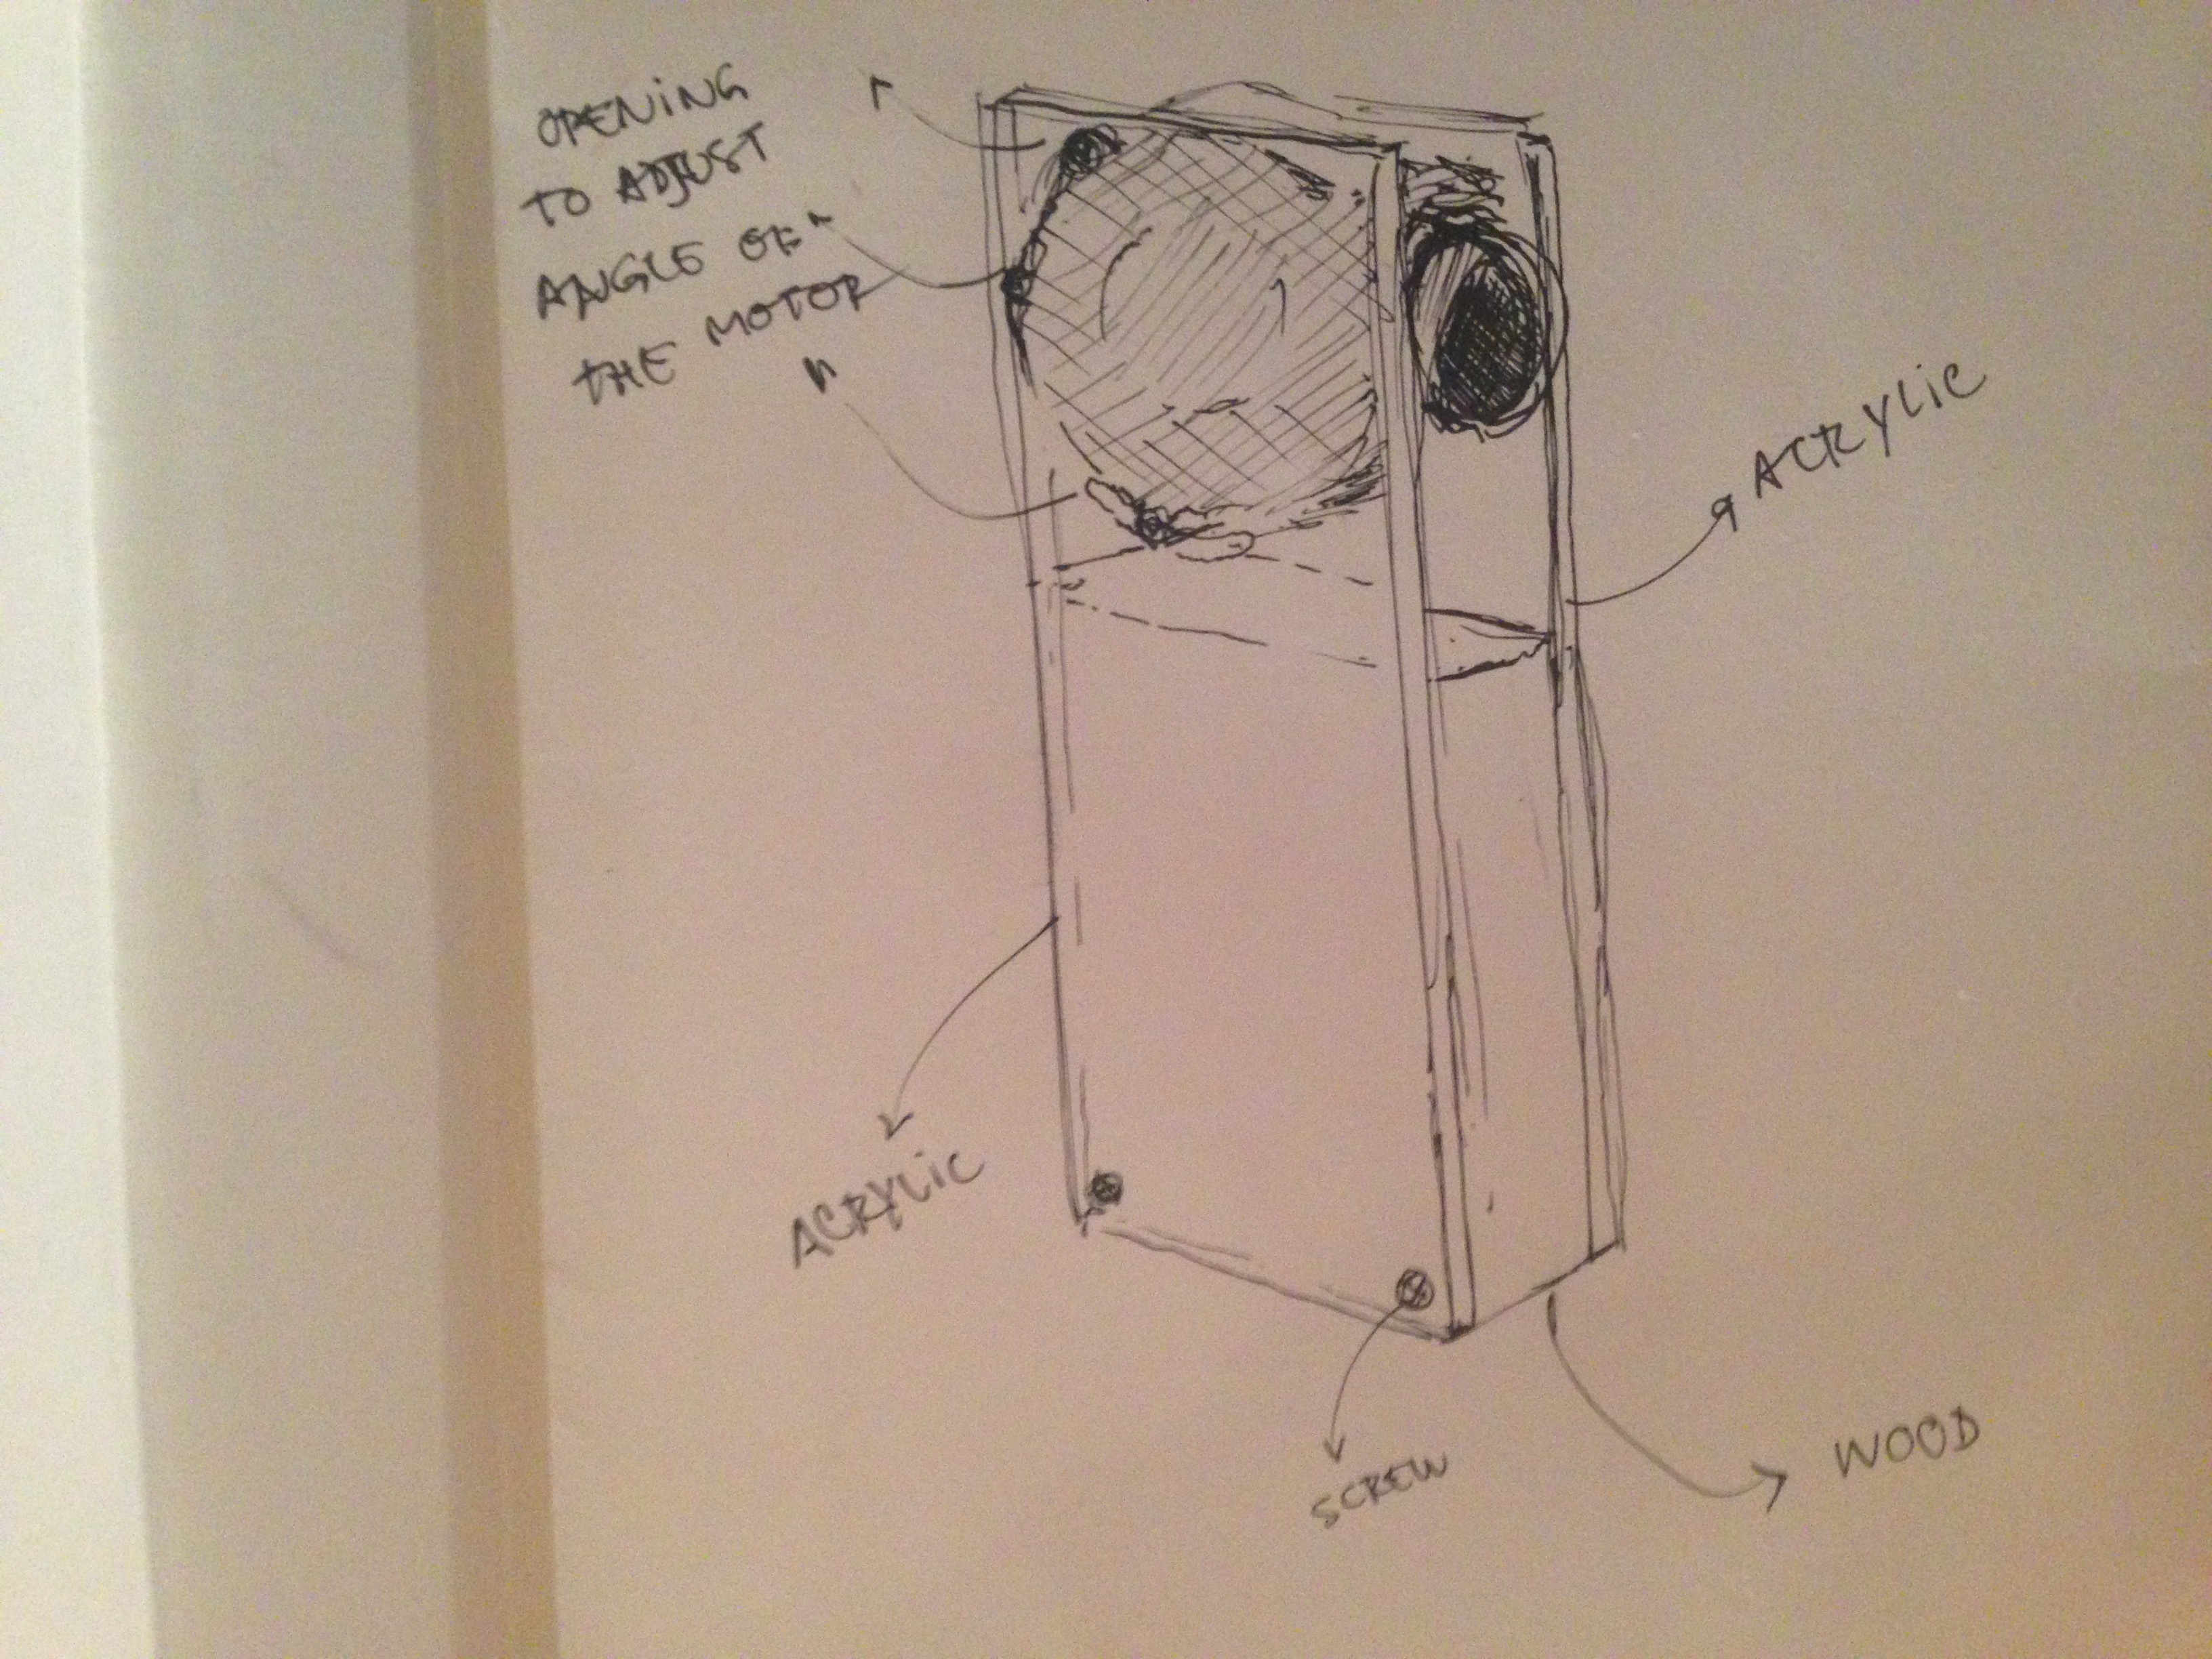 OPENING
TO ADJUST
ANGLE OF
THE MOTOR
ACRYLIC
ACRYLIC
SCREW
WOOD